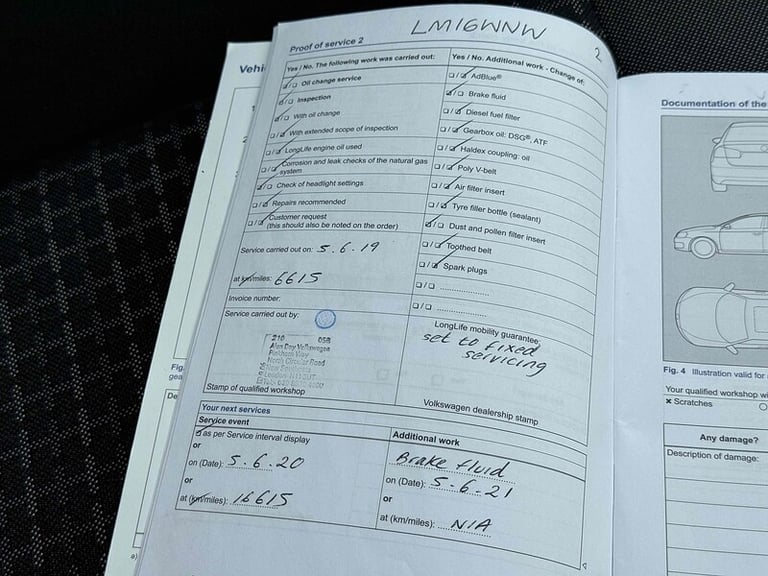 LM16WNW
2
Proof of service 2
Yes / No. The following work was carried out:
Oil change service
Inspection
With oil change
With extended scope of inspection
LongLife engine oil used
Corrosion and leak checks of the natural gas
system
Check of headlight settings
Repairs recommended
Customer request
(this should also be noted on the order)
Service carried out on: 5.6.19
at km/miles: 6615
Invoice number:
Service carried out by:
210 05B
Alan Day Volkswagen
Pinkham Way
North Circular Road
Stamp of qualified workshop
Yes / No. Additional work - Change of:
AdBlue®
Brake fluid
Diesel fuel filter
Gearbox oil: DSG®, ATF
Haldex coupling: oil
Poly V-belt
Air filter insert
Tyre filler bottle (sealant)
Dust and pollen filter insert
Toothed belt
Spark plugs
LongLife mobility guarantee:
set to fixed
servicing
Volkswagen dealership stamp
Your next services
Service event
as per Service interval display
or
on (Date): 5.6.20
or
at (km/miles): 16615
Additional work
Brake fluid
on (Date): 5.6.21
or
at (km/miles): N/A
Vehi
Fig.
gea
De
a)
Documentation of the
Fig. 4 Illustration valid for
Your qualified workshop wi
× Scratches
Any damage?
Description of damage: